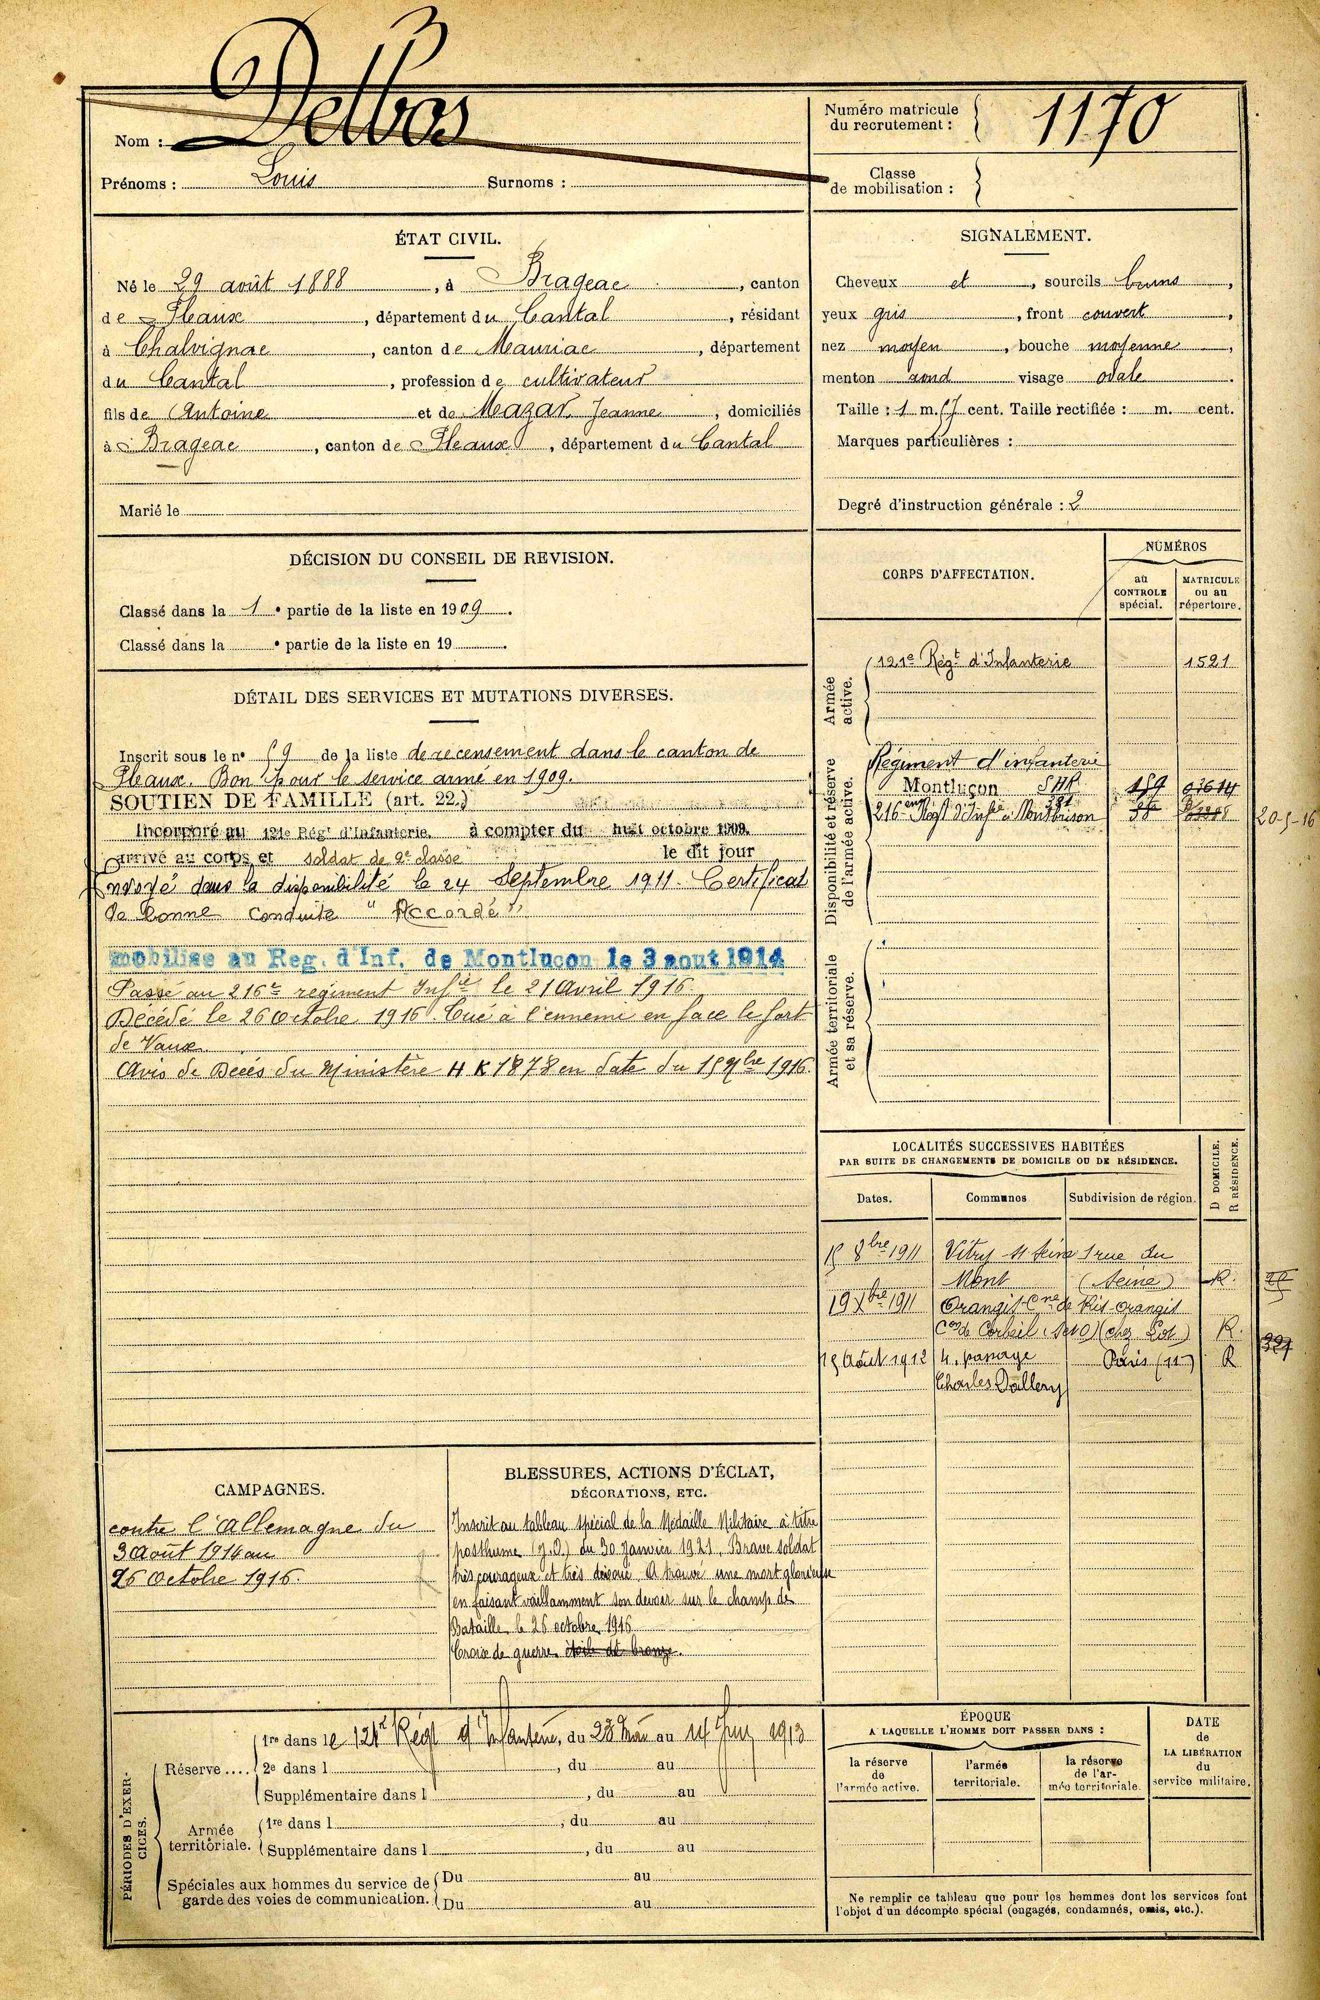 Delbos
Nom :
Prénoms : Louis Surnoms :
Numéro matricule
du recrutement : 1170
Classe
de mobilisation :
ÉTAT CIVIL.
Né le 29 août 1888, à Brageac, canton
de Pleaux, département du Cantal, résidant
à Chalvignac, canton de Mauriac, département
du Cantal, profession de cultivateur
fils de Antoine et de Mazar Jeanne, domiciliés
à Brageac, canton de Pleaux, département du Cantal
Marié le
SIGNALEMENT.
Cheveux et, sourcils bruns,
yeux gris, front couvert,
nez moyen, bouche moyenne,
menton rond visage ovale.
Taille : 1 m. 57 cent. Taille rectifiée : m. cent.
Marques particulières :
Degré d'instruction générale : 2
DÉCISION DU CONSEIL DE REVISION.
Classé dans la 1e partie de la liste en 1909.
Classé dans la e partie de la liste en 19
DÉTAIL DES SERVICES ET MUTATIONS DIVERSES.
Inscrit sous le n° 59 de la liste de recensement dans le canton de
Pleaux. Bon pour le service armé en 1909.
SOUTIEN DE FAMILLE (art. 22.)
Incorporé au 121e Régt d'Infanterie. à compter du huit octobre 1909.
arrivé au corps et soldat de 2e classe le dit jour
Envoyé dans la disponibilité le 24 Septembre 1911. Certificat
de bonne conduite "Accordé"
mobilisé au Reg. d'Inf. de Montluçon le 3 aout 1914
Passé au 216e régiment Infie le 21 Avril 1916.
Décédé le 26 Octobre 1916. Tué à l'ennemi en face le fort
de Vaux.
Avis de Décès du Ministère H K 1878 en date du 15 9bre 1916.
CORPS D'AFFECTATION.
NUMÉROS
au
CONTROLE
spécial.
MATRICULE
ou au
répertoire.
Armée
active.
121e Régt d'Infanterie 1521
Disponibilité et réserve
de l'armée active.
Régiment d'infanterie
Montluçon SHR 159 03614
216em Régt d'Infie à Montbrison 20-5-16
Armée territoriale
et sa réserve.
LOCALITÉS SUCCESSIVES HABITÉES
PAR SUITE DE CHANGEMENTS DE DOMICILE OU DE RÉSIDENCE.
D DOMICILE.
R RÉSIDENCE.
Dates. Communes Subdivision de région.
15 8bre 1911 Vitry s/ Seine 1 rue du
Mont (Seine) R.
19 Xbre 1911 Orangis Cne de Ris-Orangis
Con de Corbeil (S et O) (chez Lot) R.
15 Août 1912 4, passage Paris (11e) R
Charles Dallery
CAMPAGNES.
contre l'Allemagne du
3 Août 1914 au
26 Octobre 1916.
BLESSURES, ACTIONS D'ÉCLAT,
DÉCORATIONS, ETC.
Inscrit au tableau spécial de la Médaille Militaire à titre
posthume (J.O.) du 30 janvier 1921. Brave soldat
très courageux et très dévoué. A trouvé une mort glorieuse
en faisant vaillamment son devoir sur le champ de
Bataille, le 26 octobre 1916
Croix de guerre étoile de bronze.
PÉRIODES D'EXERCICES.
Réserve.... 1re dans le 121e Régt d'Infanterie, du 28 Mai au 14 Juin 1913
2e dans l, du au
Supplémentaire dans l, du au
Armée
territoriale. 1re dans l, du au
Supplémentaire dans l, du au
Spéciales aux hommes du service de
garde des voies de communication.
Du au
Du au
ÉPOQUE
A LAQUELLE L'HOMME DOIT PASSER DANS :
la réserve
de
l'armée active.
l'armée
territoriale.
la réserve
de l'ar-
mée territoriale.
DATE
de
LA LIBÉRATION
du
service militaire.
Ne remplir ce tableau que pour les hommes dont les services font
l'objet d'un décompte spécial (engagés, condamnés, omis, etc.).